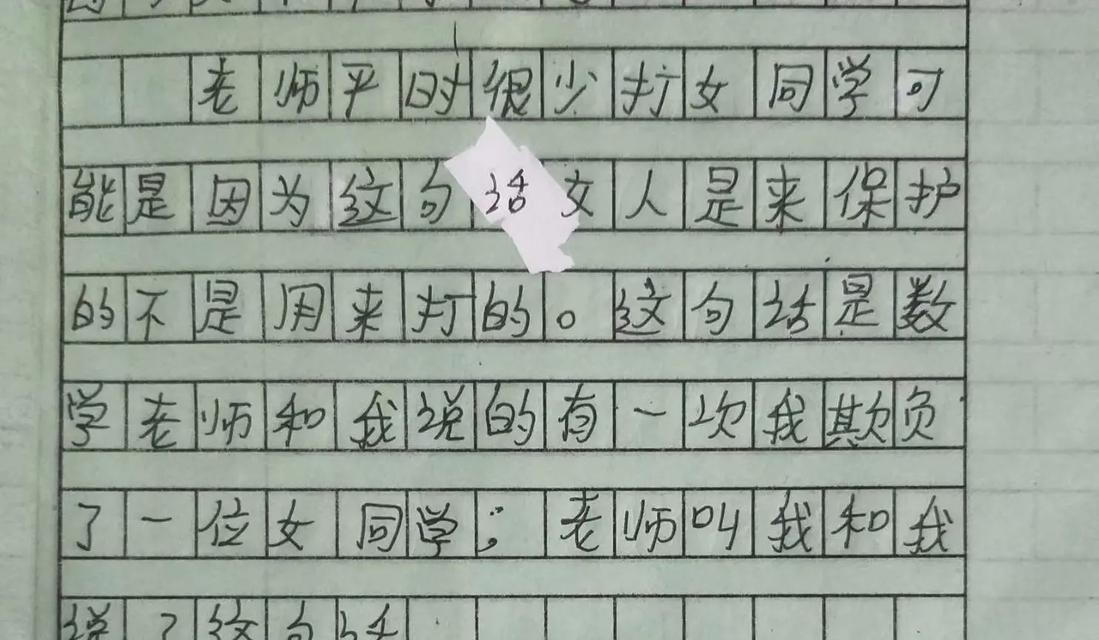 老师平时很少打女同学可
能是因为这句话女人是来保护
的不是用来打的。这句话是数
学老师和我说的有一次我欺负
了一位女同学；老师叫我和我
说了这句话